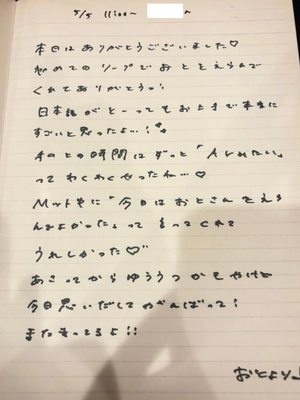 5/5 11:00~
本日はありがとうございました♡
初めてのソープでおとをえらんで
くれてありがとうっ!
日本語がとーってもお上手で本当に
すごいと思ったよ…!
との時間はずっと「AVみたい」
ってわくわくやったね…♡
Mっ気に「今日はおとさんをえら
んでよかった」って言ってくれて
うれしかった♡
あさってからゆううつかもやけど
今日思いだしてがんばって!
また まってるよ!!
おとより